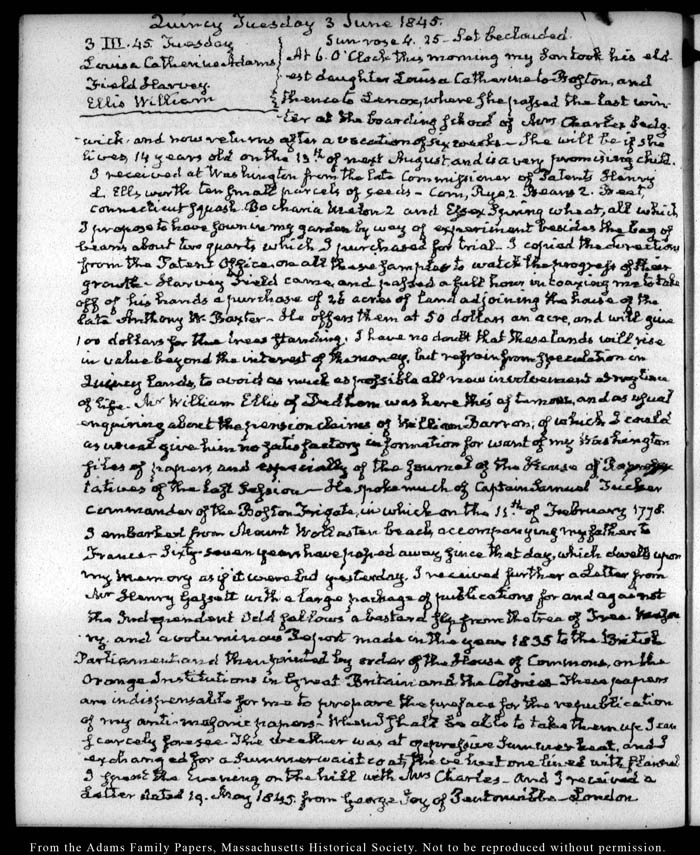 Quincy Tuesday 3 June 1845.
3 III. 45. Tuesday Sun rose 4. 25 - Set beclouded.
Louisa Catherine Adams
Field Harvey.
Ellis William
At 6. O'Clock this morning my Son took his eld-
est daughter Louisa Catherine to Boston, and
thence to Lenox, where she passed the last win-
ter at the boarding school of Mrs Charles Sedg-
wick and now returns after a vacation of six weeks - She will be if she
lives, 14 years old on the 13th of next August, and is a very promising child.
I received at Washington from the late Commissioner of Patents Henry
L. Ellsworth ten small parcels of seeds - Corn, Rye 2 Beans 2. Wheat,
Connecticut squash. Bocharia Melon 2 and Essex Spring wheat, all which
I propose to have sown in my garden by way of experiment besides the bag of
beans about two quarts which I purchased for trial. I copied the directions
from the Patent Office, on all these samples to watch the progress of their
growth - Harvey Field came, and passed a full hour in coaxing me to take
off of his hands a purchase of 28 acres of land adjoining the house of the
late Anthony W. Baxter - He offers them at 50 dollars an acre, and will give
100 dollars for the trees standing. I have no doubt that these lands will rise
in value beyond the interest of the money, but refrain from speculation in
Quincy lands, to avoid as much as possible all new involvement at my time
of life. Mr William Ellis of Dedham was here this afternoon, and as usual
enquiring about the pension claims of William Barron, of which I could
as usual give him no satisfactory information for want of my Washington
files of papers, and especially of the Journal of the House of Represen-
tatives of the last Session - He spoke much of Captain Samuel Tucker
commander of the Boston Frigate, in which on the 13th of February 1778.
I embarked from Mount Wollaston beach, accompanying my father to
France - Sixty-seven years have passed away since that day, which dwells upon
my memory as if it were but yesterday. I received further a Letter from
Mr Henry Gassett with a large package of publications for and against
the Independent Odd fellows a bastard slip from the tree of Free Mason-
ry, and a voluminous Report made in the year 1835 to the British
Parliament and then printed by order of the House of Commons, on the
Orange Institutions in Great Britain and the Colonies. These papers
are indispensable for me to prepare the preface for the republication
of my anti-masonic papers - When I shall be able to take them up I can
scarcely foresee. The weather was at oppressive Summer heat, and I
exchanged for a Summer waistcoat, the vest one lined with flannel
I spent the Evening on the hill with Mrs Charles - and I received a
Letter dated 19. May 1845. from George Joy of Pentonville - London
From the Adams Family Papers, Massachusetts Historical Society. Not to be reproduced without permission.